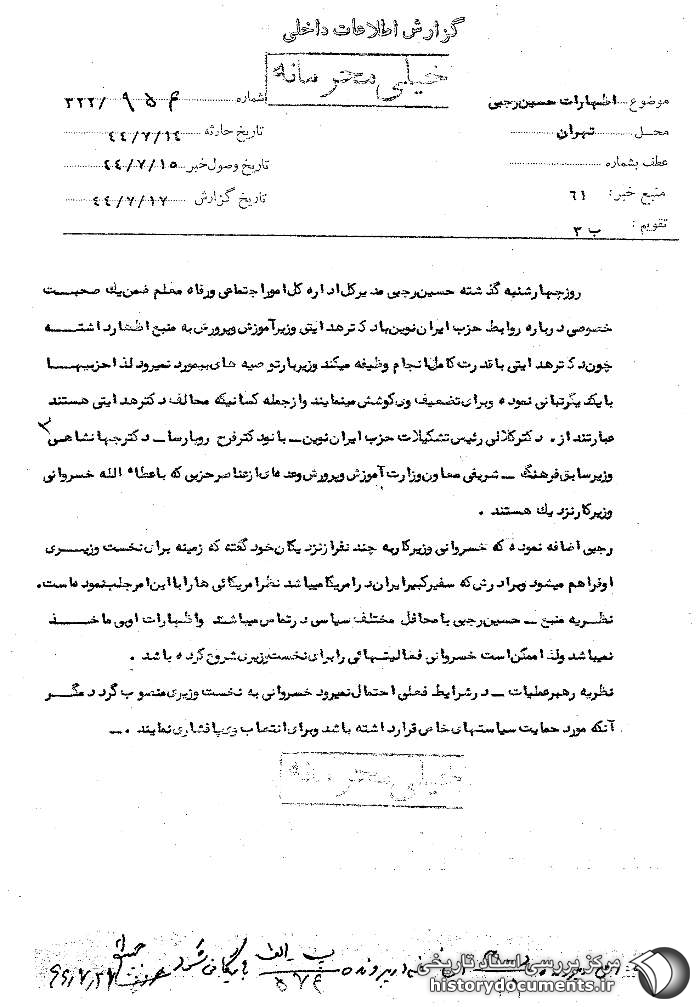 گزارش اطلاعات داخلی
خیلی محرمانه
موضوع اظهارات حسین رجبی
شماره ۳۲۲/۹۵۴
محل تهران
تاریخ حادثه ۴۴/۷/۱۴
عطف بشماره
تاریخ وصول خبر ۴۴/۷/۱۵
منبع خبر: ۶۱
تاریخ گزارش ۴۴/۷/۱۷
تقویم: ب ۳
روز چهارشنبه گذشته حسین رجبی مدیرکل اداره کل امور اجتماعی و رفاه معلم ضمن یك صحبت
خصوصی درباره روابط حزب ایران نوین با دکتر هدایتی وزیر آموزش و پرورش به منبع اظهار داشته
چون دکتر هدایتی با قدرت کامل انجام وظیفه میکند و زیر بار توصیه های بیمورد نمیرود لذا حزبیها
با یکدیگر تبانی نموده و برای تضعیف وی کوشش مینمایند و از جمله کسانیکه مخالف دکتر هدایتی هستند
عبارتند از . دکتر کلالی رئیس تشکیلات حزب ایران نوین ـ بانو دکتر فرخ رو پارسا ـ دکتر جهانشاهی
وزیر سابق فرهنگ ـ شریفی معاون وزارت آموزش و پرورش وعده ای از عناصر حزبی که با عطاء الله خسروانی
وزیر کار نزدیك هستند .
رجبی اضافه نموده که خسروانی وزیر کار به چند نفر از نزدیکان خود گفته که زمینه برای نخست وزیری
او فراهم میشود و برادرش که سفیر کبیر ایران در امریکا میباشد نظر امریکائی ها را با این امر جلب نموده است.
نظریه منبع ـ حسین رجبی با محافل مختلف سیاسی در تماس میباشد و اظهارات او بی ماخذ
نمیباشد و لذا ممکن است خسروانی فعالیتهائی را برای نخست وزیری شروع کرده باشد .
نظریه رهبر عملیات ـ در شرایط فعلی احتمال نمیرود خسروانی به نخست وزیری منصوب گردد مگر
آنکه مورد حمایت سیاستهای خاص قرار داشته باشد و برای انتصاب وی پافشاری نمایند . ـ
خیلی محرمانه
پرونده ب ـ الف بایگانی شود
مرکز بررسی اسناد تاریخی
historydocuments.ir